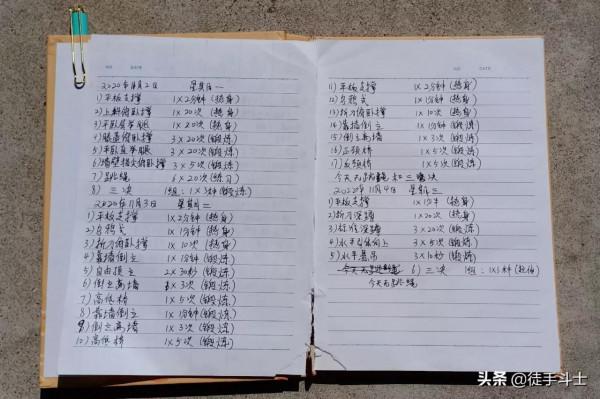 NO. DATE
2020年11月2日 星期一
1)平板支撑 1×2分钟(热身)
2)上斜俯卧撑 1×20次(热身)
3)平卧直举腿 1×20次(热身)
4)膝盖俯卧撑 3×20次(锻炼)
5)平卧直举腿 3×20次(锻炼)
6)墙壁指尖俯卧撑 3×5次(锻炼)
7)跳绳 6×20次(练习)
8) 三次 1组:1×3种(锻炼)
2020年11月3日 星期二
1)平板支撑 1×2分钟(热身)
2)乌鸦式 1×1分钟(热身)
3)折刀俯卧撑 1×10次(热身)
4)靠墙倒立 1×1分钟(锻炼)
5)自由顶立 2×30秒(锻炼)
6)倒立离墙 3次(锻炼)
7)高低桥 1×5次(锻炼)
8)靠墙倒立 1×1分钟(锻炼)
9)倒立离墙 1×3次(锻炼)
10)高低桥 1×5次(锻炼)
NO. DATE
11)平板支撑 1×2分钟(热身)
12)乌鸦式 1×1分钟(热身)
13)折刀俯卧撑 1×10次(热身)
14)靠墙倒立 1×1分钟(锻炼)
15)倒立离墙 1×3次(锻炼)
16)正颈桥 1×5次(锻炼)
17)反颈桥 1×5次(锻炼)
今天无跳绳和三次
2020年11月4日 星期三
1)平板支撑 1×1分半(热身)
2)折刀深蹲 1×20次(热身)
3)标准深蹲 3×20次(锻炼)
4)水平引体向上 3×5次(锻炼)
5)水平悬吊 3×10秒(锻炼)
6)三次 1组:1×3种(拉伸)
今天无跳绳
头条 @徒手斗士